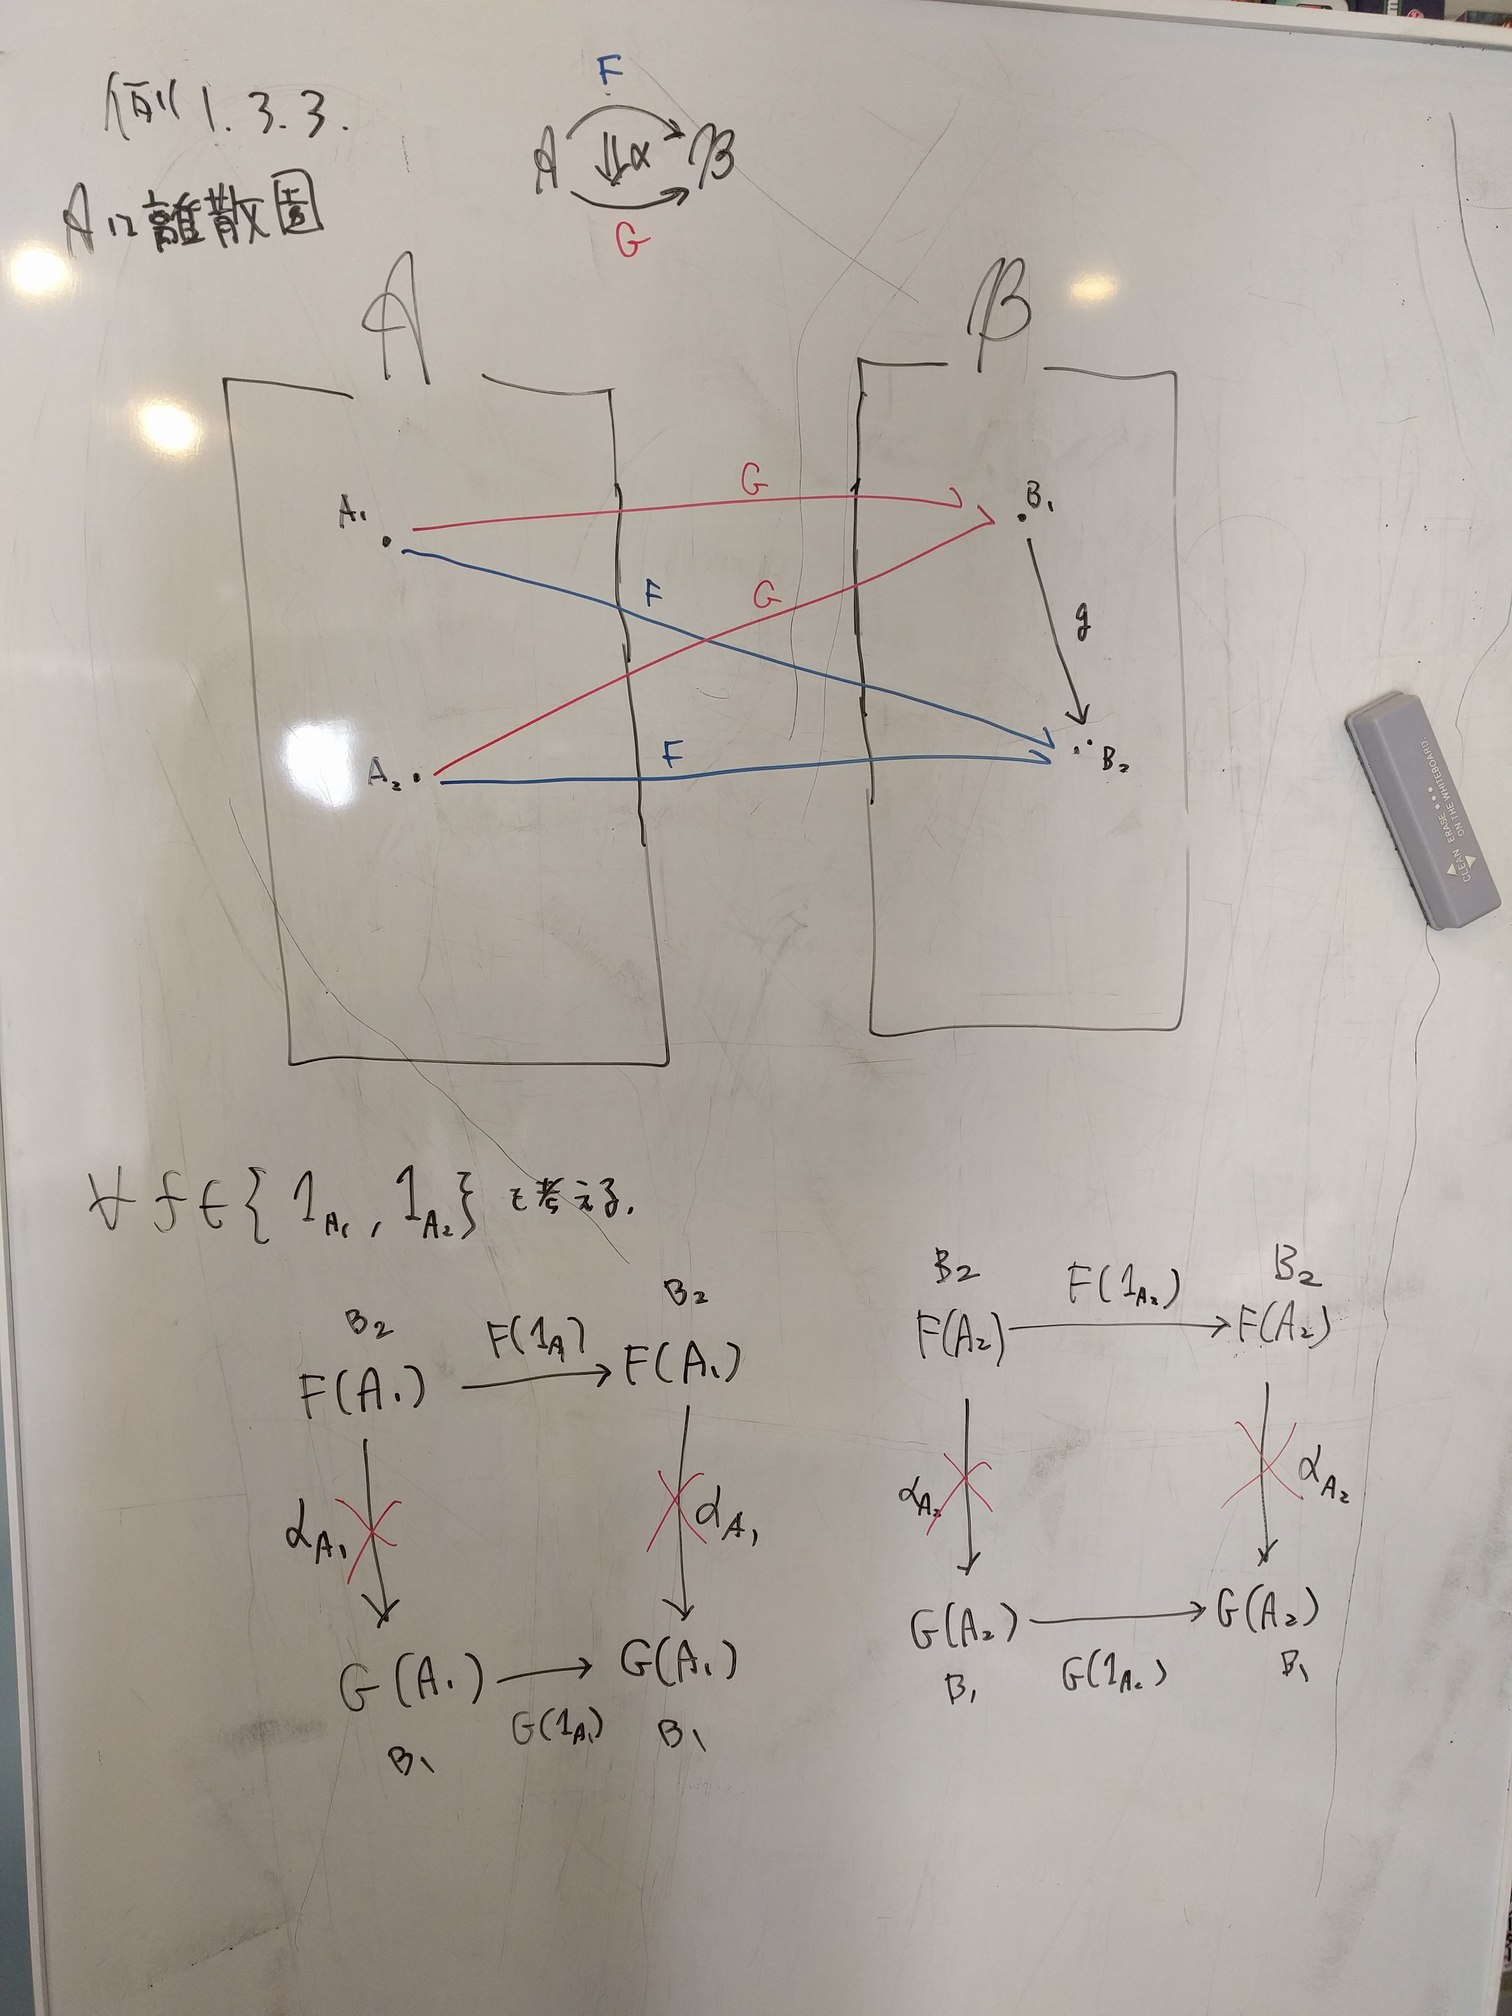 例1.3.3.
F
A ⇓α B
G
Aは離散圏
A
B
G
A₁
B₁
F
G
g
F
A₂
B₂
CLEAN ERASE
ON THE WHITEBOARD.
∀f∈{1_A₁, 1_A₂}を考える.
B₂ B₂
F(A₁) F(1_A₁) F(A₁)
α_A₁ α_A₁
G(A₁) G(1_A₁) G(A₁)
B₁ B₁
B₂ B₂
F(A₂) F(1_A₂) F(A₂)
α_A₂ α_A₂
G(A₂) G(1_A₂) G(A₂)
B₁ B₁